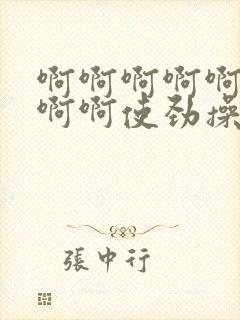 啊啊啊啊啊
啊啊使劲操
張中行